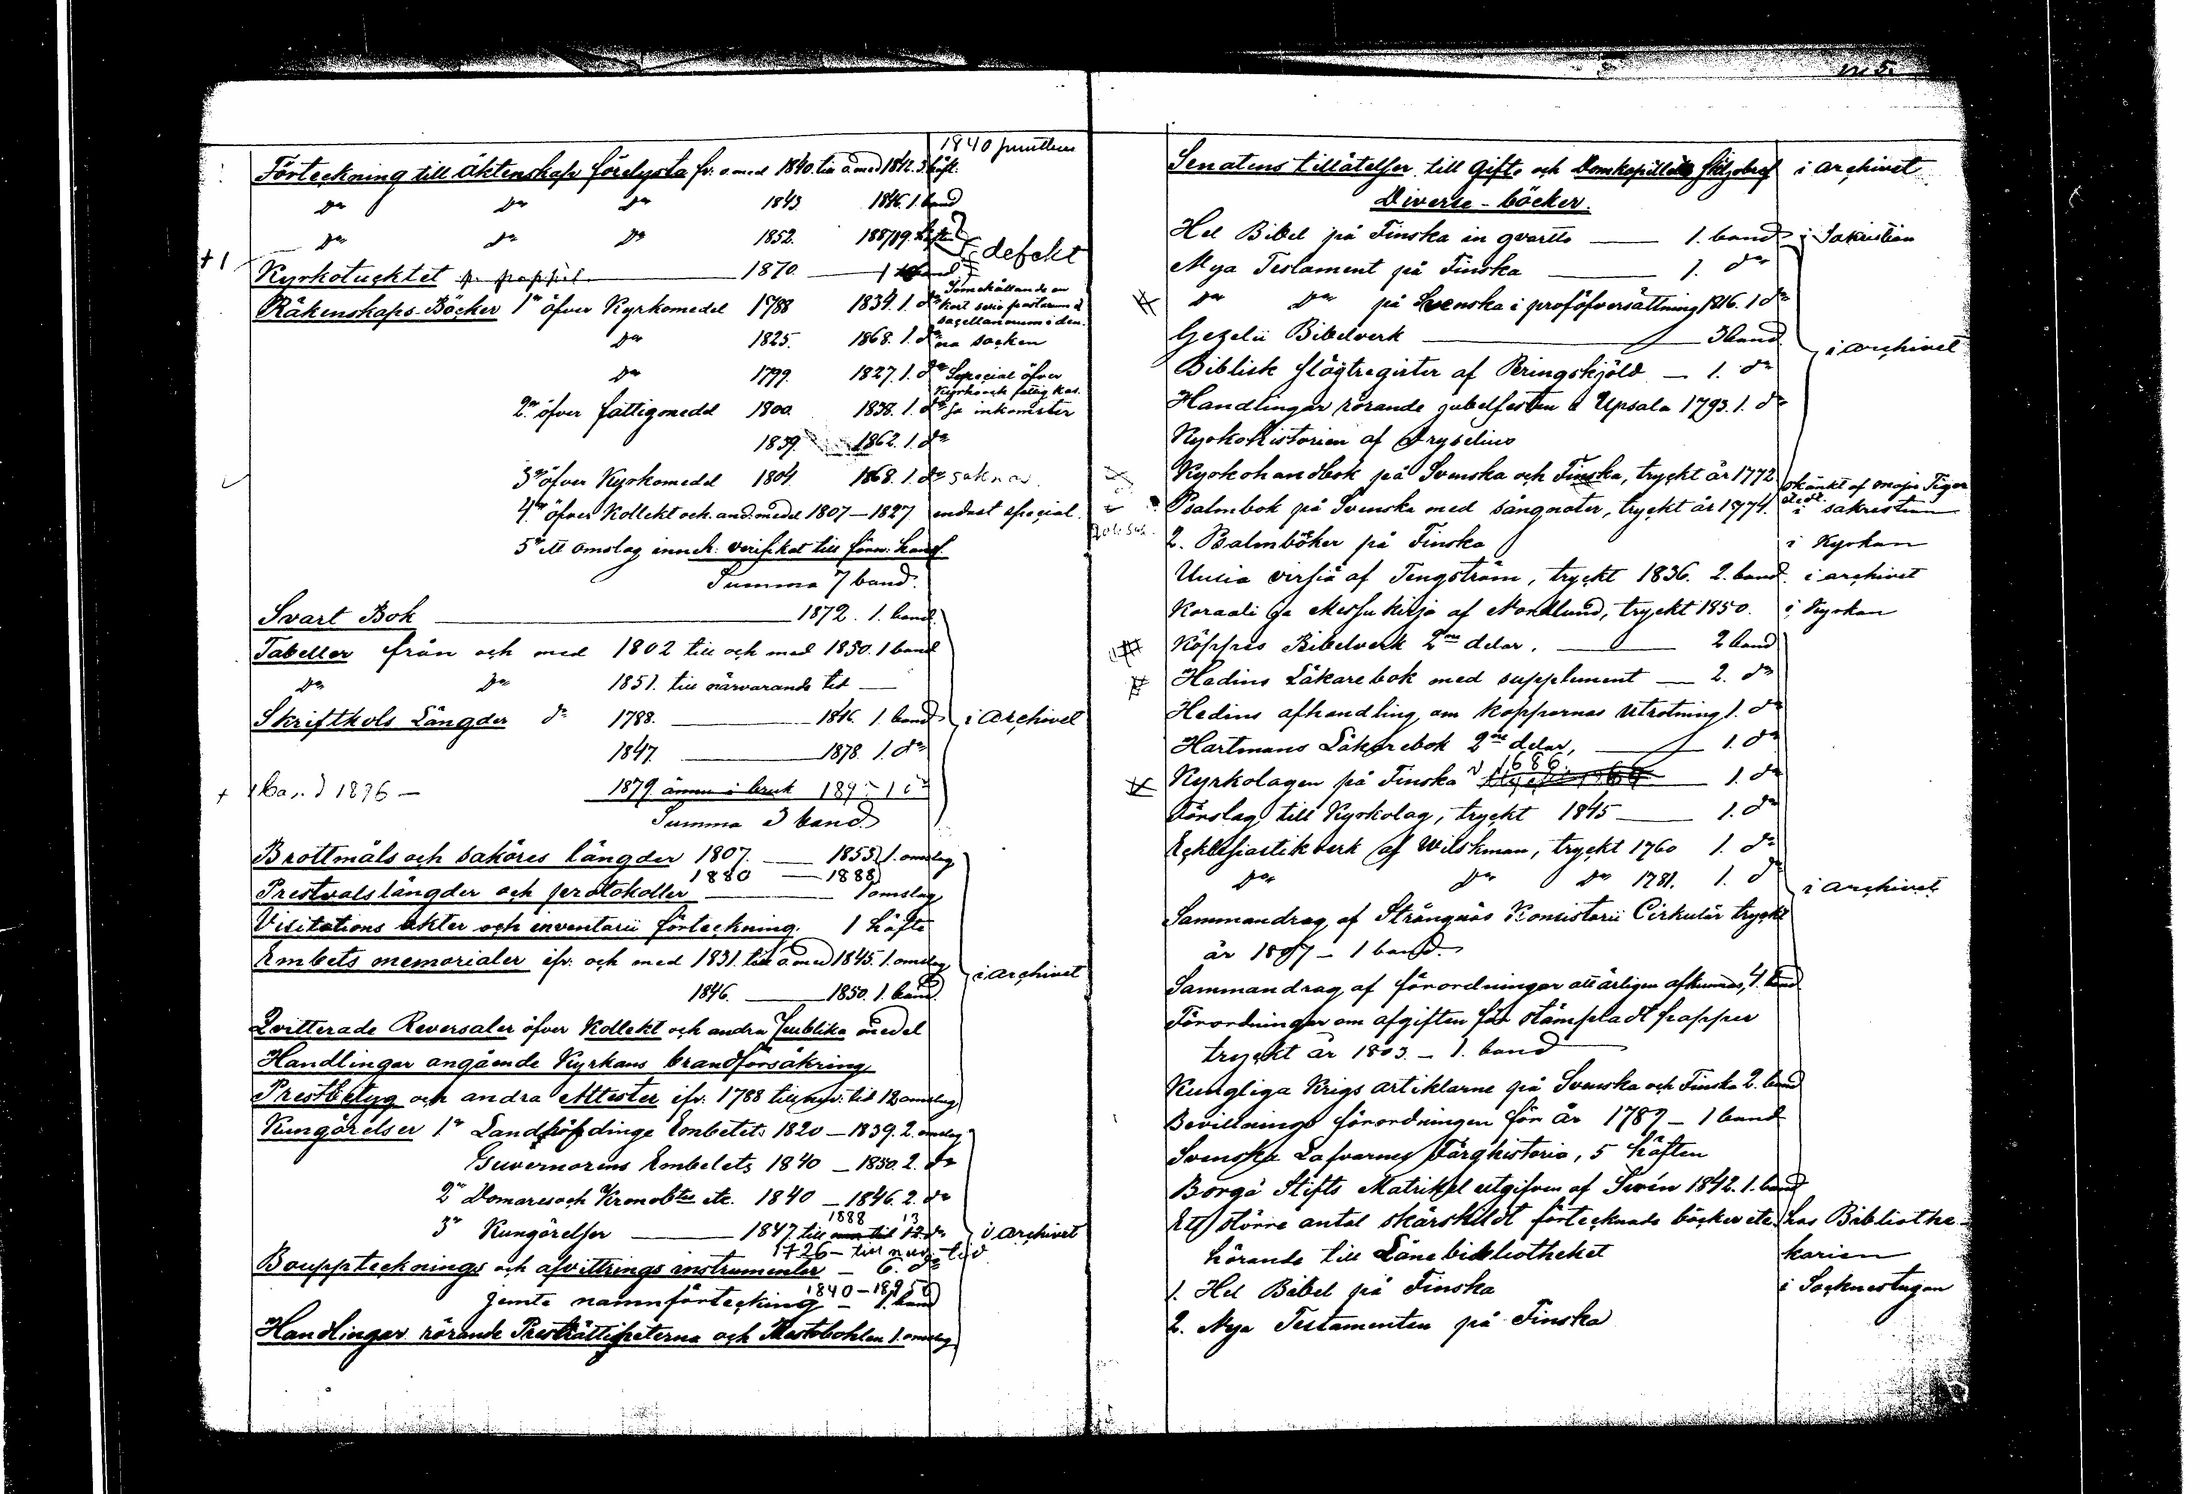 1840 puuttuu
Förteckning till Äktenskaps förelysta fr. o med 1840. till o. med 1842. 3. häft.
Do Do Do 1843 1846. 1. band
Do Do Do 1852. 1887 19. häften
defekt
+1
Kyrkotucktet 1870.
Räkenskaps-Böcker 1o öfver Kyrkomedel 1788 1834. 1. do
Innehållande en
kort serie pastorum &
sacellanorum i den-
na socken
Do 1825. 1868. 1. do
Do 1799. 1827. 1. do Special öfver
Kyrko och fattig kas-
sa inkomster
2o öfver fattigmedel 1800. 1838. 1. do
1839. 1862. 1. do
3o öfver Kyrkomedel 1804. 1868. 1. do saknas.
4o öfver Kollekt och. and. medel 1807–1827 endast special.
5o Ett omslag inneh. verifikat till förw. handl.
Summa 7 band.
Svart Bok 1872. 1. band
Tabeller från och med 1802 till och med 1850. 1 band
Do Do 1851. till närvarande tid —
Skriftkols Längder do 1788. 1846. 1. band
i archivet
1847. 1878. 1. do
+ 1 band 1896 — 1879. ännu i bruk 189
Summa 3 band
Brottmåls och saköres längder 1807. — 1853. 1. omslag
1880 — 1888
Prestvalslängder och protokoller 1 omslag
Visitations akter och inventarii förteckning. 1 häfte
Embets memorialer ifr. och med 1831. till o med 1845. 1. omslag
i archivet
1846. 1850. 1. band
Qvitterade Reversaler öfver Kollekt och andra Publika medel
Handlingar angående Kyrkans brandförsäkring
Prestbetyg och andra Attester ifr. 1788 till nuv. tid 12 omslag
Kungörelser 1o Landshöfdinge Embetets 1820 – 1839. 2. omslag
Guvernörens Embetets 1840 – 1850. 2. do
2o Domares och Kronobtes etc. 1840 – 1846. 2. do
1888 13
3o Kungörelser 1847 till nuv. tid 12 do
i archivet
1726 – till nuv. tid
Boupptecknings och afvittrings instrumenter – 6. do
1840–1895
jemte namnförteckning – 1. band
Handlingar rörande Presträttigheterna och Mastebohlen 1. omslag
no 5.
Senatens tillåtelser till Gifte och Domkapitlets Skiljobref i archivet
Diverse-böcker.
Hel Bibel på Finska in qvarto — 1. band i Sakristian
Nya Testament på Finska — 1. do
Do Do på Svenska i proföfversättning 1816. 1 do
Gezelii Bibelverk 3 band
i archivet
Biblisk slägtregister af Peringskjöld — 1. do
Handlingar rörande jubelfesten i Upsala 1793. 1. do
Kyrkohistorien af Rydelius
Kyrkohandbok på Svenska och Finska, tryckt år 1772.
skänkt af major Tiger
stedt.
Psalmbok på Svenska med sångnoter, tryckt år 1774. i sakristian
2. Psalmböker på Finska i Kyrkan
Uusia virsiä af Tengström, tryckt 1836. 2. band. i archivet
Koraali ja Messu kirja af Nordlund, tryckt 1850. i Kyrkan
Köppes Bibelverk 2ne delar. 2 band
Hedins Läkarebok med supplement — 2. do
Hedins afhandling om koppornas utrotning 1. do
Hartmans Läkarebok 2ne delar, 1. do
1686.
Kyrkolagen på Finska 1. do
Förslag till Kyrkolag, tryckt 1845 — 1. do
Ecklesiastikverk af Wilskman, tryckt 1760 1. do
Do Do Do 1781. 1. do
i archivet
Sammandrag af Strängnäs Konsistorii Cirkulär tryckt
år 1807 – 1 band.
Sammandrag af förordningar att årligen afkunnas, 4. band
Förordningar om afgiften för stämpladt papper
tryckt år 1803. – 1. band
Kungliga Krigs artiklarne på Svenska och Finska 2. band
Bevillnings förordningen för år 1789 – 1 band
Svenska Lafvarnes Färghistoria, 5 häften
Borgå Stifts Matrikel utgifven af Sirén 1842. 1. band
Ett större antal skärskildt förtecknade böcker etc. hos Bibliothe-
hörande till Lånebibliotheket karien
1. Hel Bibel på Finska i Socknestugan
2. Nya Testamenten på Finska